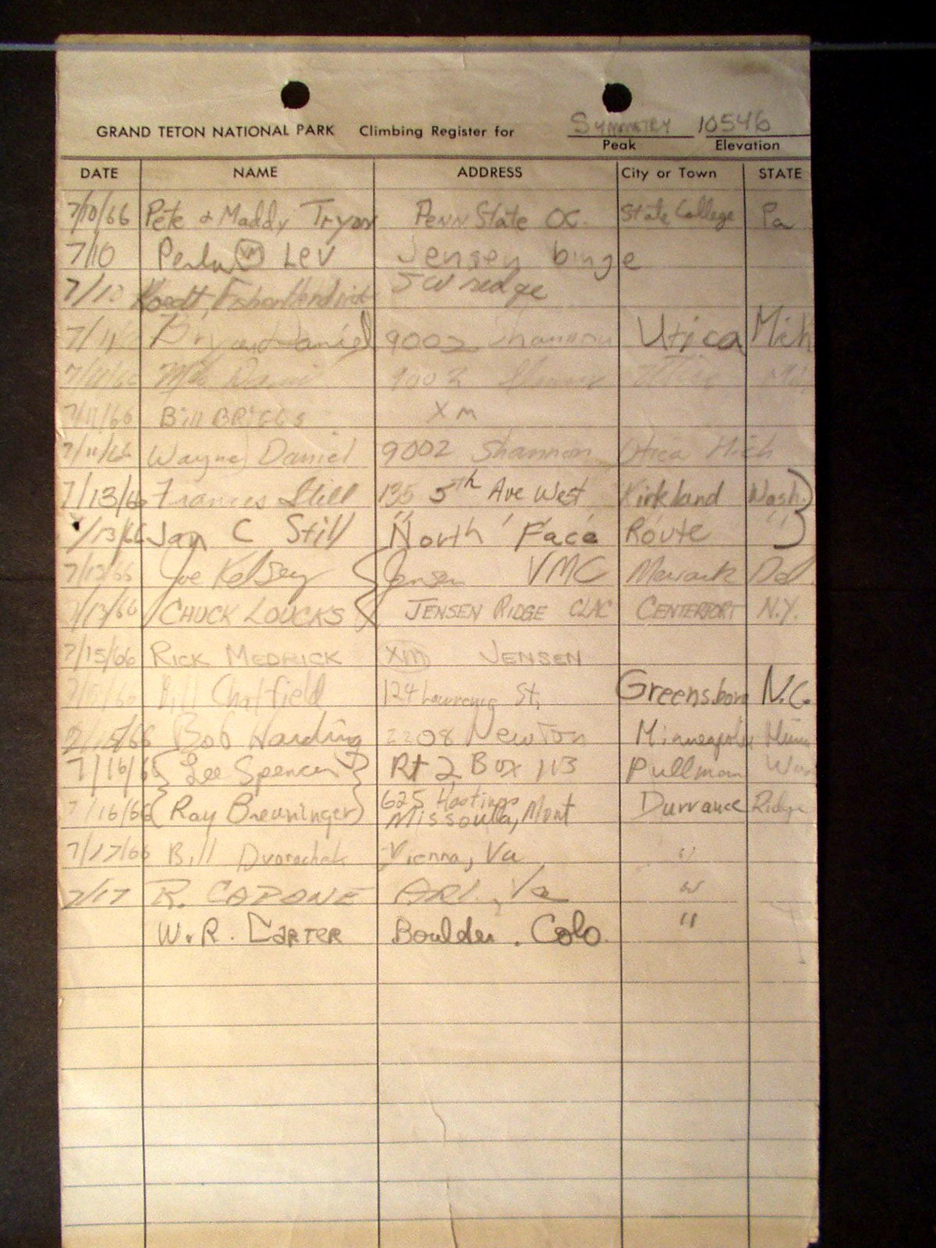 GRAND TETON NATIONAL PARK Climbing Register for SYMMETRY 10546
Peak Elevation
DATE NAME ADDRESS City or Town STATE
7/10/66 Pete & Maddy Tryon Penn State OC. State College Pa
7/10 Perla VM Lev Jensen binge
7/12 SW ridge
7/11 Bryant Daniel 9002 Shannon Utica Mich
9002
7/11/66 Bill BRIGGS XM
7/11/66 Wayne Daniel 9002 Shannon Utica Mich
7/13/66 Frances Still 135 5th Ave West Kirkland Wash.
7/13/66 Jan C Still " North Face Route "
7/13/66 Joe Kelsey Jensen VMC Del.
7/17/66 CHUCK LOUCKS JENSEN RIDGE CENTERPORT N.Y.
7/15/66 RICK MEDRICK XM JENSEN
Bill Chatfield 124 Lawrence St, Greensboro N.C.
7/15/66 Bob Harding 2208 Newton Minneapolis Minn
7/16/66 {Lee Spencer} Rt 2 Box 113 Pullman Was
7/16/66 (Ray Breuninger) 625 Hastings Missoula, Mont Durrance Ridge
7/17/66 Bill Dvorachek Vienna, Va "
7/17 R. CAPONE ARL., Va "
W.R. CARTER Boulder. Colo. "